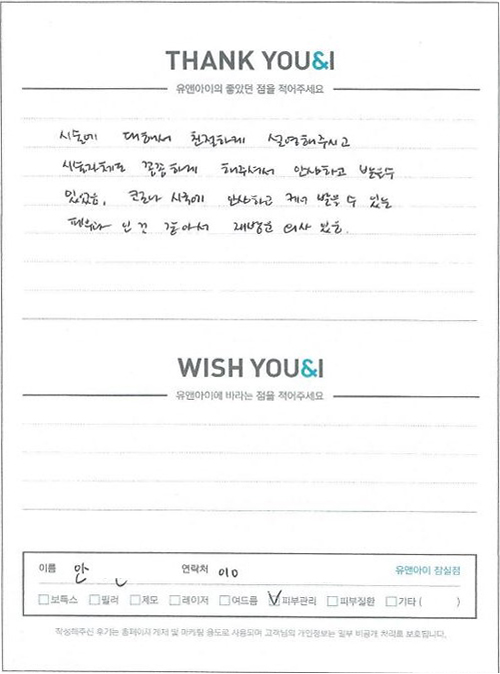 THANK YOU&I
유앤아이의 좋았던 점을 적어주세요
시술에 대해서 친절하게 설명해주시고
시술자체도 꼼꼼하게 해주셔서 안심하고 받을수
있었음. 코로나 시국에 안심하고 케어 받을 수 있는
피부과 인 것 같아서 재방문 의사 있음.
WISH YOU&I
유앤아이에 바라는 점을 적어주세요
이름 안 연락처 010 유앤아이 잠실점
보톡스 필러 제모 레이저 여드름 피부관리 피부질환 기타 ( )
작성해주신 후기는 홈페이지 게재 및 마케팅 용도로 사용되며 고객님의 개인정보는 일부 비공개 처리로 보호됩니다.